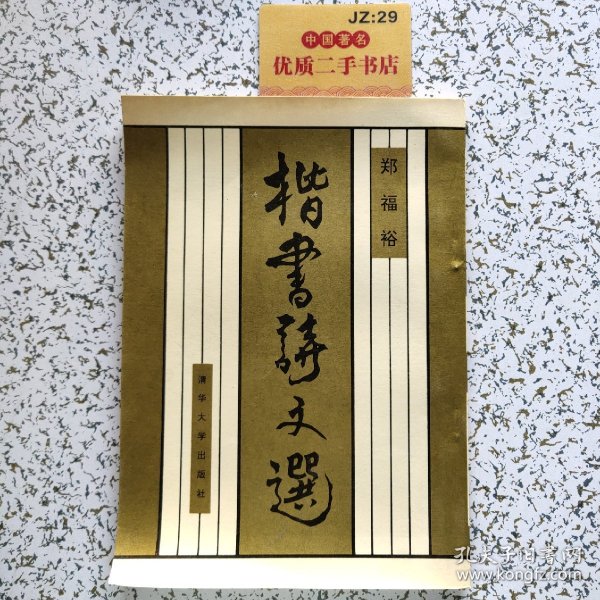 JZ:29
中国著名
优质二手书店
郑福裕
楷书诗文選
清华大学出版社
孔夫子旧书网
www.kongfz.com